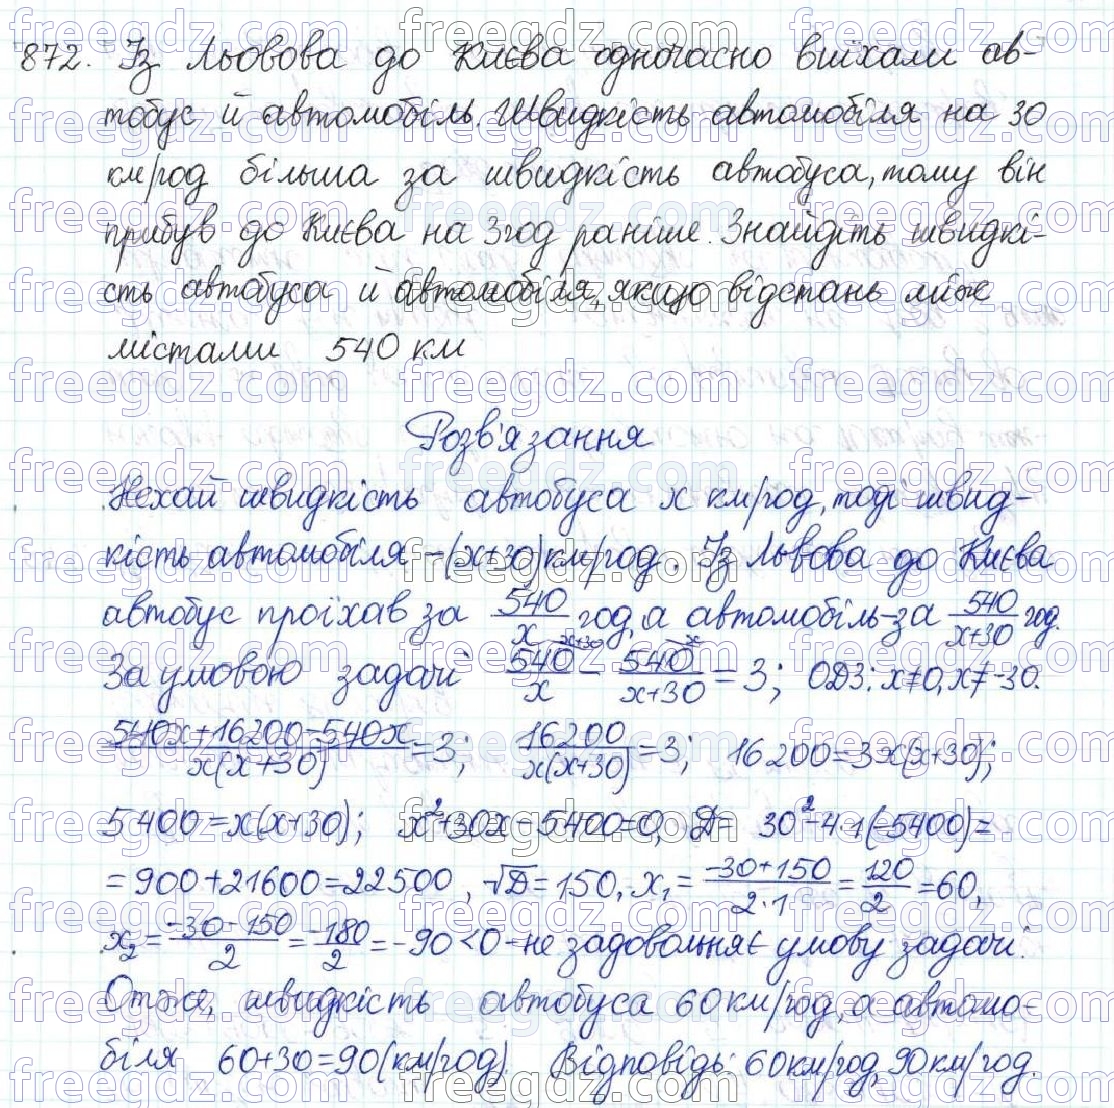 872. Із Львова до Києва одночасно виїхали ав-
тобус й автомобіль. Швидкість автомобіля на 30
км/год більша за швидкість автобуса, тому він
прибув до Києва на 3 год раніше. Знайдіть швидкі-
сть автобуса й автомобіля, якщо відстань між
містами 540 км
Розв'язання
Нехай швидкість автобуса x км/год, тоді швид-
кість автомобіля – (x+30) км/год. Із Львова до Києва
автобус проїхав за 540/x год, а автомобіль – за 540/(x+30) год.
За умовою задачі 540/x (x+30) – 540/(x+30) (x) = 3; ОДЗ: x≠0, x≠-30.
(540x+16200-540x)/(x(x+30)) = 3; 16200/(x(x+30)) = 3; 16200=3x(x+30);
5400=x(x+30); x²+30x-5400=0, D= 30²-4·1(-5400)=
=900+21600=22500, √D=150, x₁=(-30+150)/(2·1)=120/2=60,
x₂=(-30-150)/2=-180/2=-90<0-не задовольняє умову задачі.
Отже, швидкість автобуса 60 км/год, а автомо-
біля 60+30=90(км/год). Відповідь: 60 км/год, 90 км/год.
freegdz.com